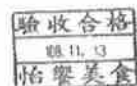 驗收合格
108.11.13
怡饗美食